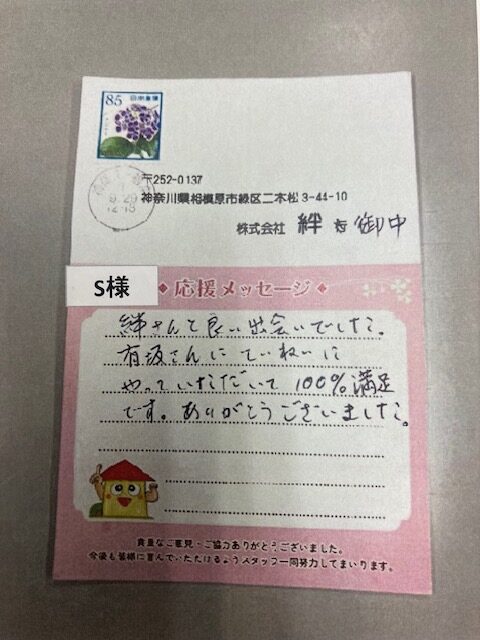 85 日本郵便
〒252-0137
神奈川県相模原市緑区二本松3-44-10
株式会社 絆 御中
S様
応援メッセージ
絆さんと良い出会いでした。
有坂さんにていねいに
やっていただいて 100%満足
です。ありがとうございました。
貴重なご意見・ご協力ありがとうございました。
今後も皆様に喜んでいただけるようスタッフ一同努力してまいります。